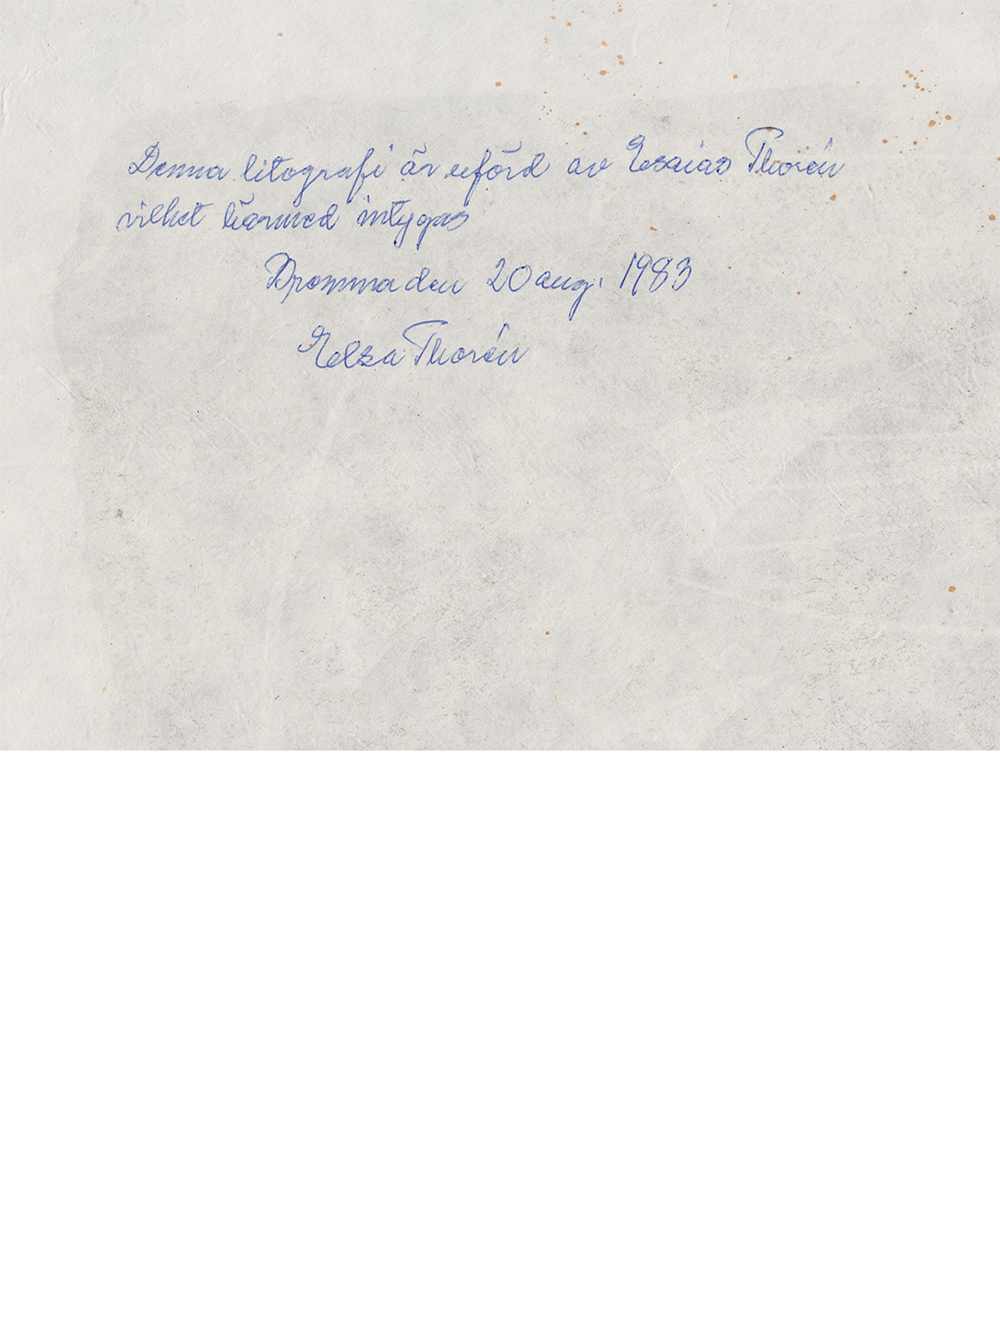 Denna litografi är utförd av Esaias Thorén
vilket härmed intygas
Bromma den 20 aug. 1983
Elsa Thorén